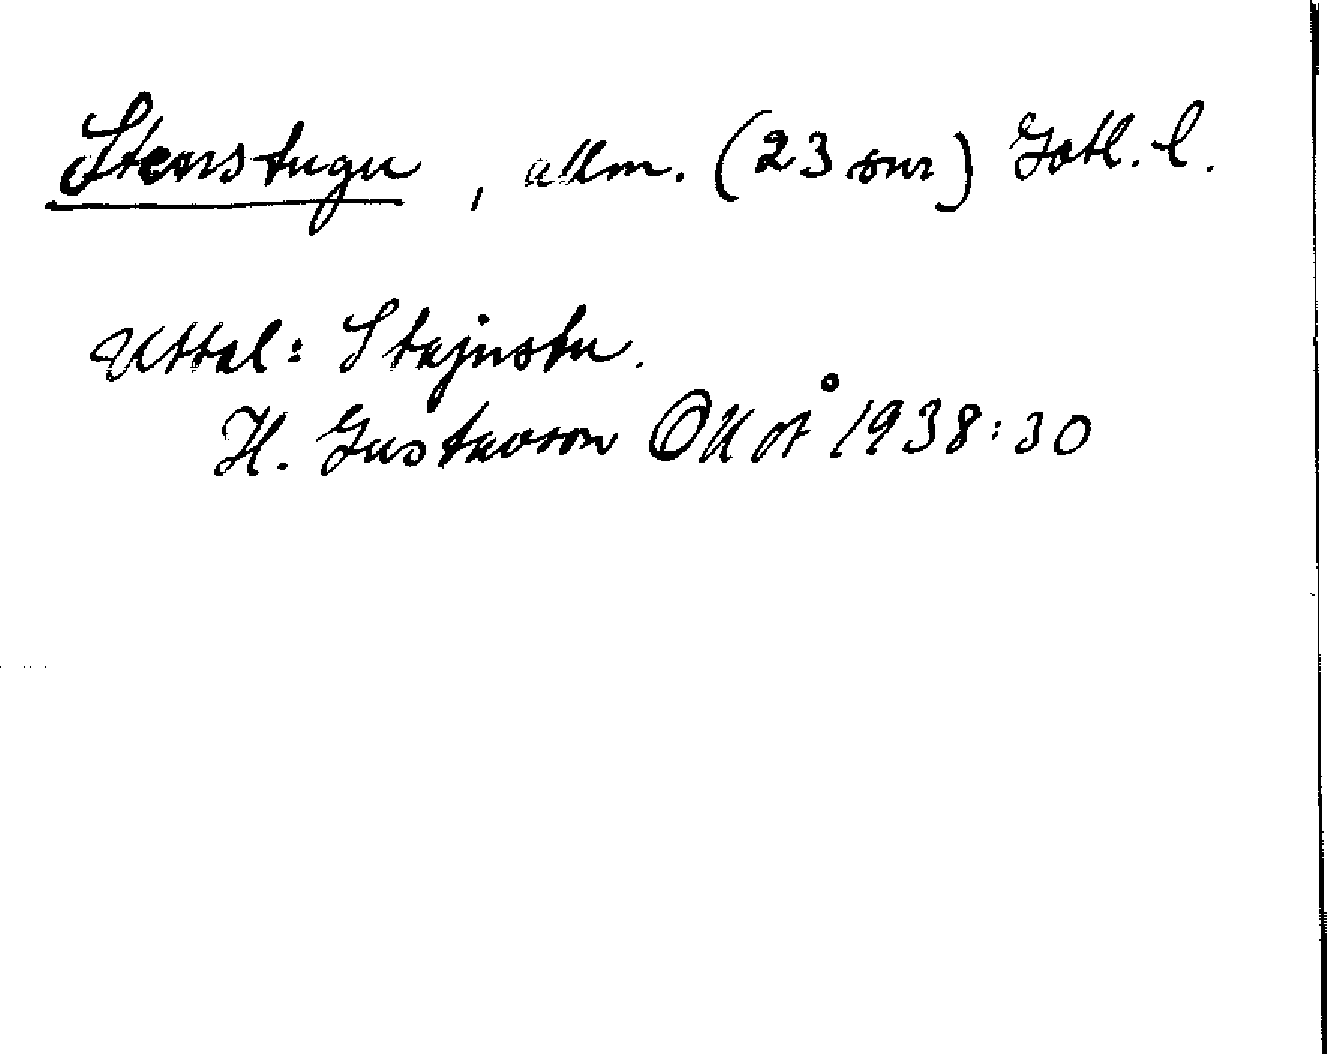 Stenstugu, allm. (23 snr) Gotl. l.
Uttal: Stajnstu.
H. Gustavson OUOÅ 1938:30